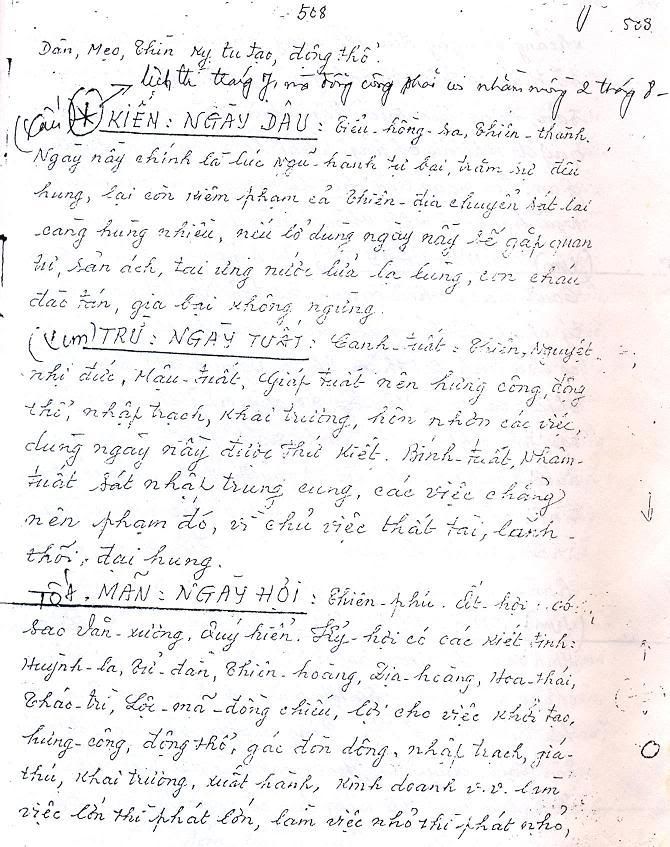 508
508
Dần, Mẹo, Thìn kỵ tu tạo, động thổ.
lịch thì trang 7, mà đổng công phải coi nhằm mồng 2 tháng 8 -
(Xấu) KIẾN: NGÀY DẬU: Tiểu-hồng-sa, Thiên-thành.
Ngày này chính là lúc Ngũ-hành tự bại, trăm sự đều
hung, lại còn xiêm phạm cả Thiên-địa chuyển sát lại
càng hung nhiều, nếu lỡ dụng ngày nầy sẽ gặp quan
tư, sản ách, tai ứng nước lửa lạ lùng, con cháu
đào tán, gia bại không ngừng.
TRỪ: NGÀY TUẤT: Canh-tuất: Thiên, Nguyệt
nhị đức, Mậu-tuất, Giáp tuất nên hưng công, động
thổ, nhập trạch, khai trương, hôn nhơn các việc,
dụng ngày nầy được thứ kiết. Bính-tuất, Nhâm-
tuất sát nhập trung cung, các việc chẳng
nên phạm đó, vì chủ việc thất tài, lãnh-
thối, đại hung.
TỐT. MÃN: NGÀY HỢI: Thiên-phú. Ất-hợi: có
sao Văn-xương, Quý hiển. Kỷ-hợi có các kiết tinh:
Huỳnh-la, Tử-đàn, Thiên-hoàng, Địa-hoàng, Hoa-thái,
Thảo-trì, Lộc-mã-đồng chiếu, lợi cho việc khởi tạo,
hưng-công, động thổ, gác đòn dông, nhập trạch, giá-
thú, khai trương, xuất hành, kinh doanh v.v. Làm
việc lớn thì phát lớn, làm việc nhỏ thì phát nhỏ,